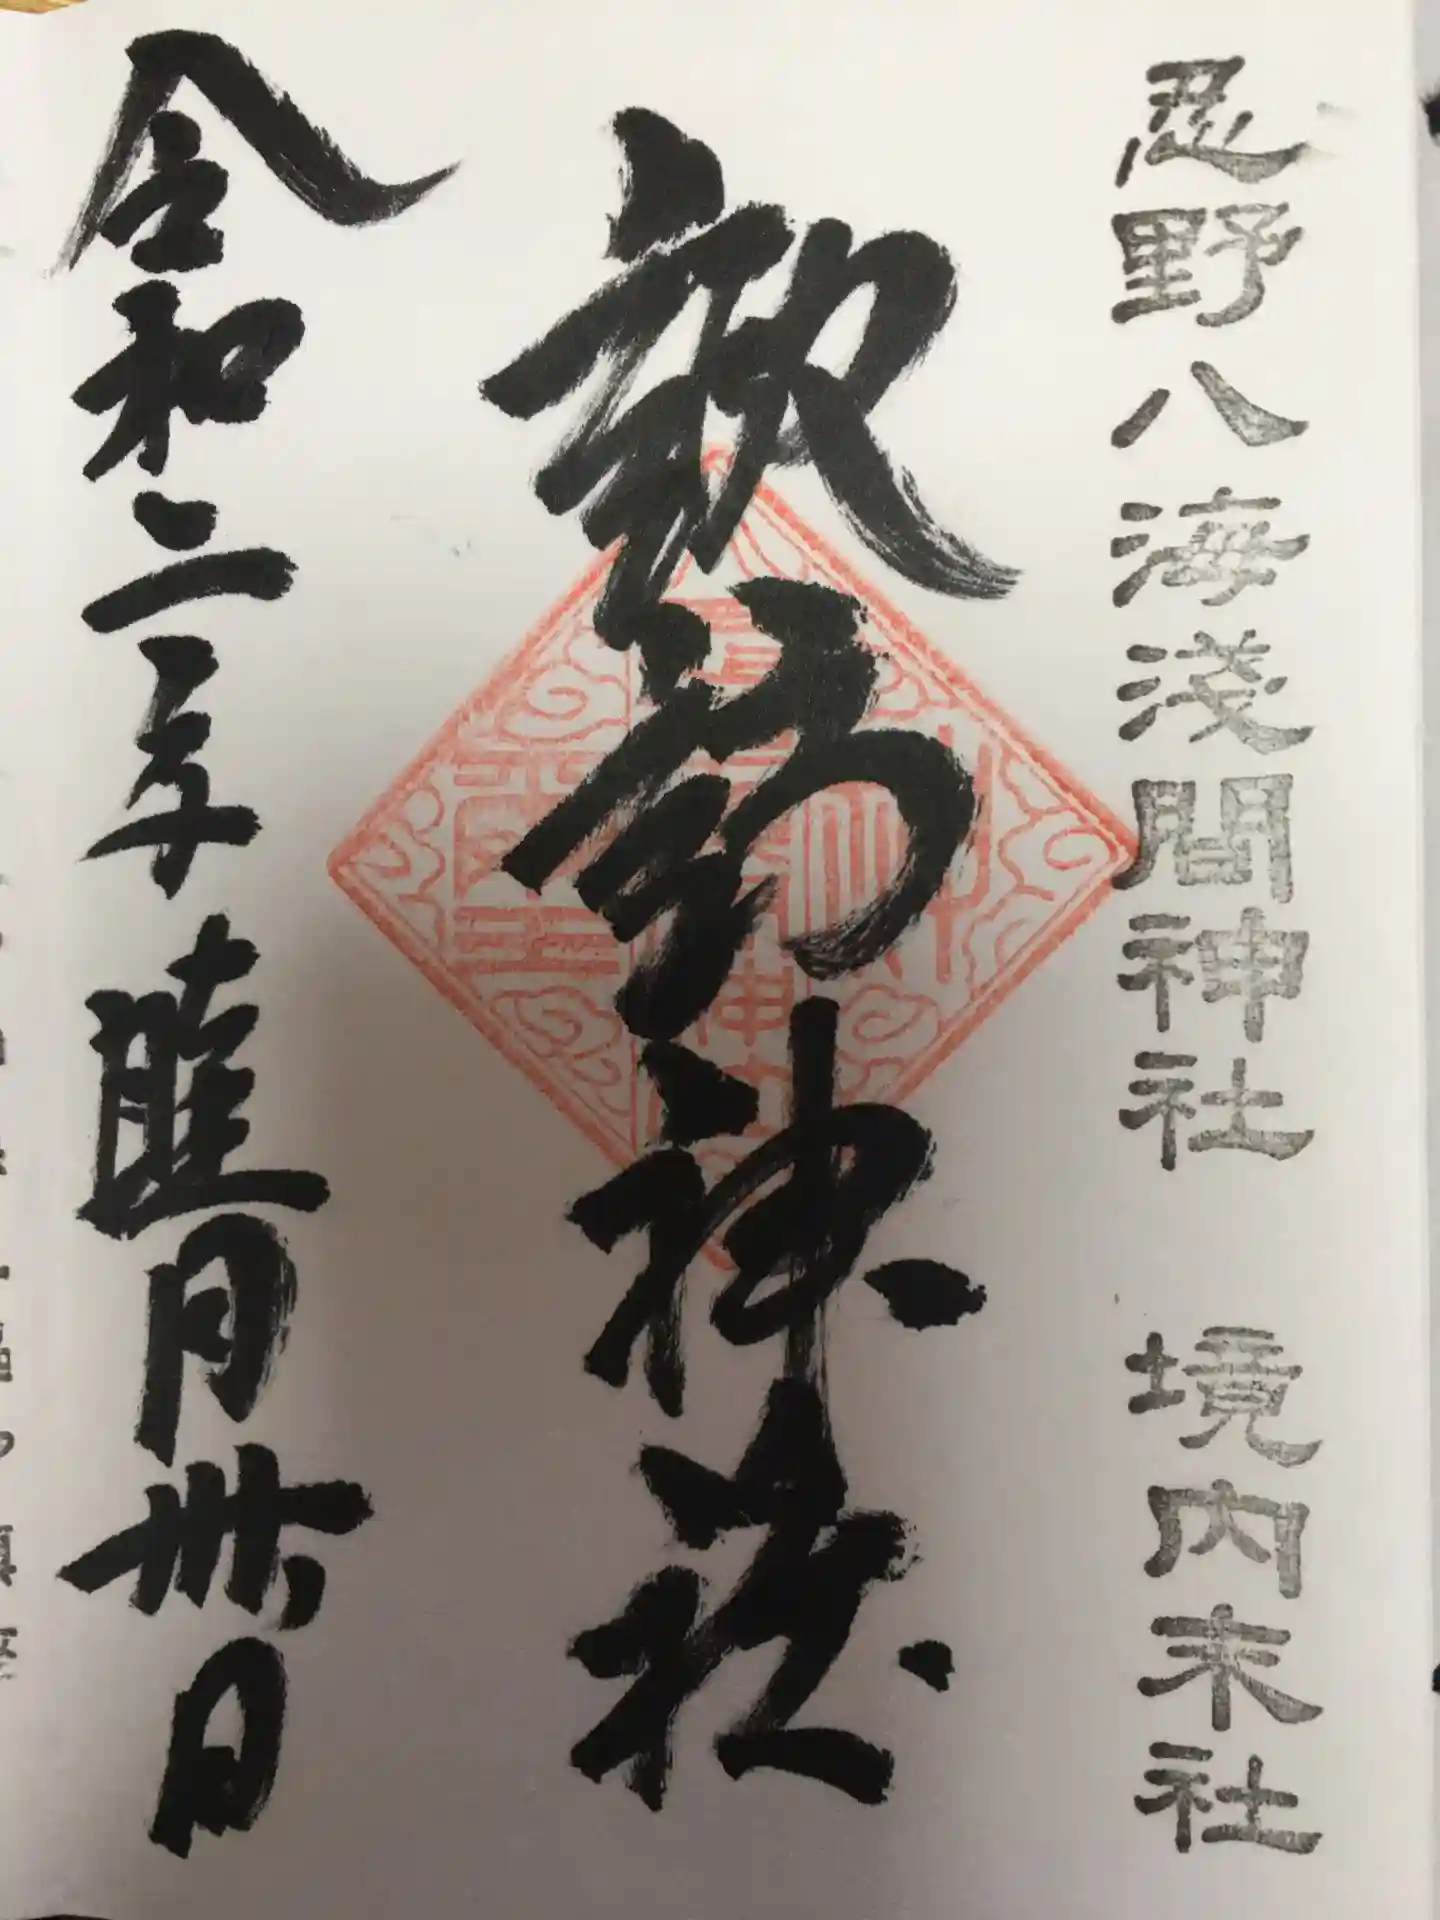 忍野八海淺間神社　境内末社
諏訪神社
令和二年睦月卅日